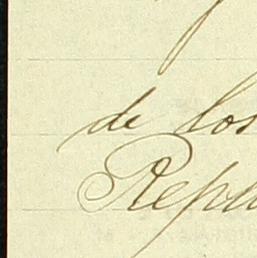 de los
Repu